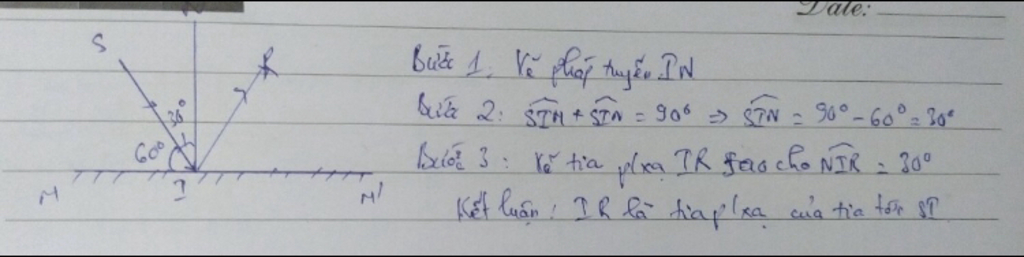 Date:
N
S
R
30°
60°
M I M'
Bước 1. Vẽ pháp tuyến IN
Bước 2: SIM + SIN = 90° => SIN = 90° - 60° = 30°
Bước 3: Vẽ tia p/xạ IR sao cho NIR = 30°
Kết luận: IR là tia p/xạ của tia tới SI